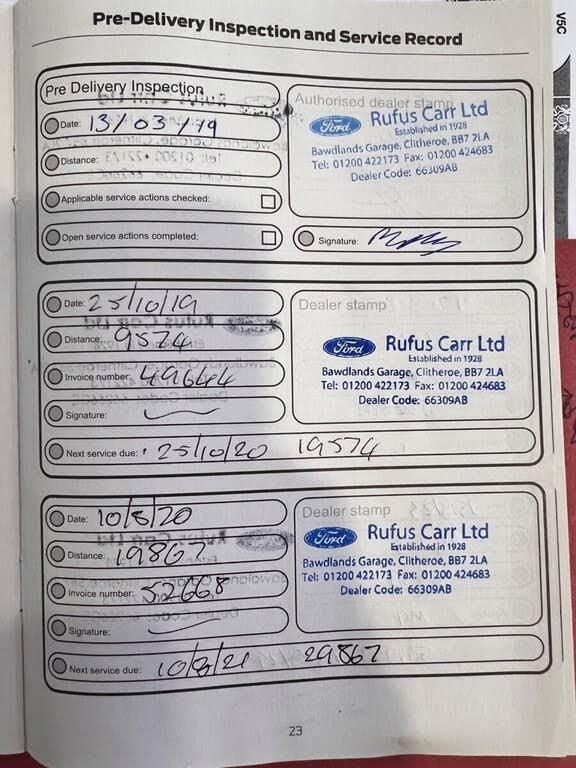 Pre-Delivery Inspection and Service Record
V5C
Pre Delivery Inspection
Date: 13/03/19
Distance:
Applicable service actions checked:
Open service actions completed:
Authorised dealer stamp
Ford Rufus Carr Ltd
Established in 1928
Bawdlands Garage, Clitheroe, BB7 2LA
Tel: 01200 422173 Fax: 01200 424683
Dealer Code: 66309AB
Signature:
Date: 25/10/19
Distance: 9574
Invoice number: 49644
Signature:
Dealer stamp
Ford Rufus Carr Ltd
Established in 1928
Bawdlands Garage, Clitheroe, BB7 2LA
Tel: 01200 422173 Fax: 01200 424683
Dealer Code: 66309AB
Next service due: 25/10/20 19574
Date: 10/8/20
Distance: 19867
Invoice number: 52668
Signature:
Dealer stamp
Ford Rufus Carr Ltd
Established in 1928
Bawdlands Garage, Clitheroe, BB7 2LA
Tel: 01200 422173 Fax: 01200 424683
Dealer Code: 66309AB
Next service due: 10/8/21 29867
23